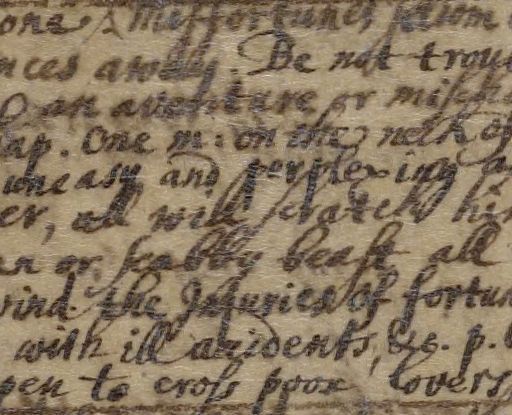 one. Missfortunes seldom
nces away. Be not trou
an aventure or misch
hap. One m: on the neck of
uneasy and perplexing a
er, all will scratch hi
an or scabby beast all
wind the Injuries of fortun
with ill accidents, &c. p.
pen to cross poor lovers